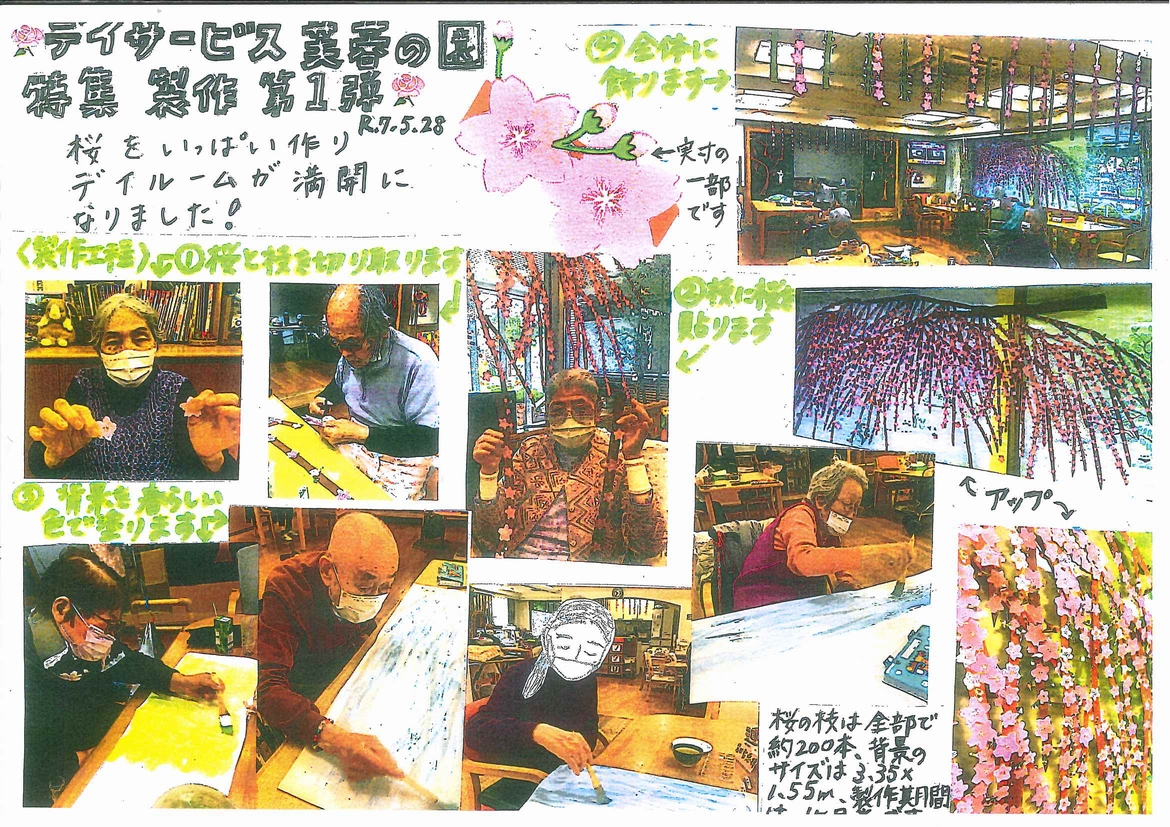 デイサービス 芙蓉の園
特集 製作 第1弾
R.7.5.28
桜をいっぱい作り
デイルームが満開に
なりました!
←実寸の
一部
です
④全体に
飾ります→
〈製作工程〉↓①桜と枝を切り取ります
②枝に桜を
貼ります
③背景を春らしい
色で塗ります
アップ
桜の枝は全部で
約200本、背景の
サイズは3.35×
1.55m、製作期間